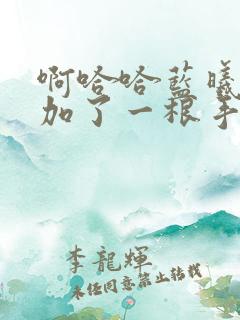 啊哈哈蓝曦
加了一根手
李龍輝
未任同意禁止转载